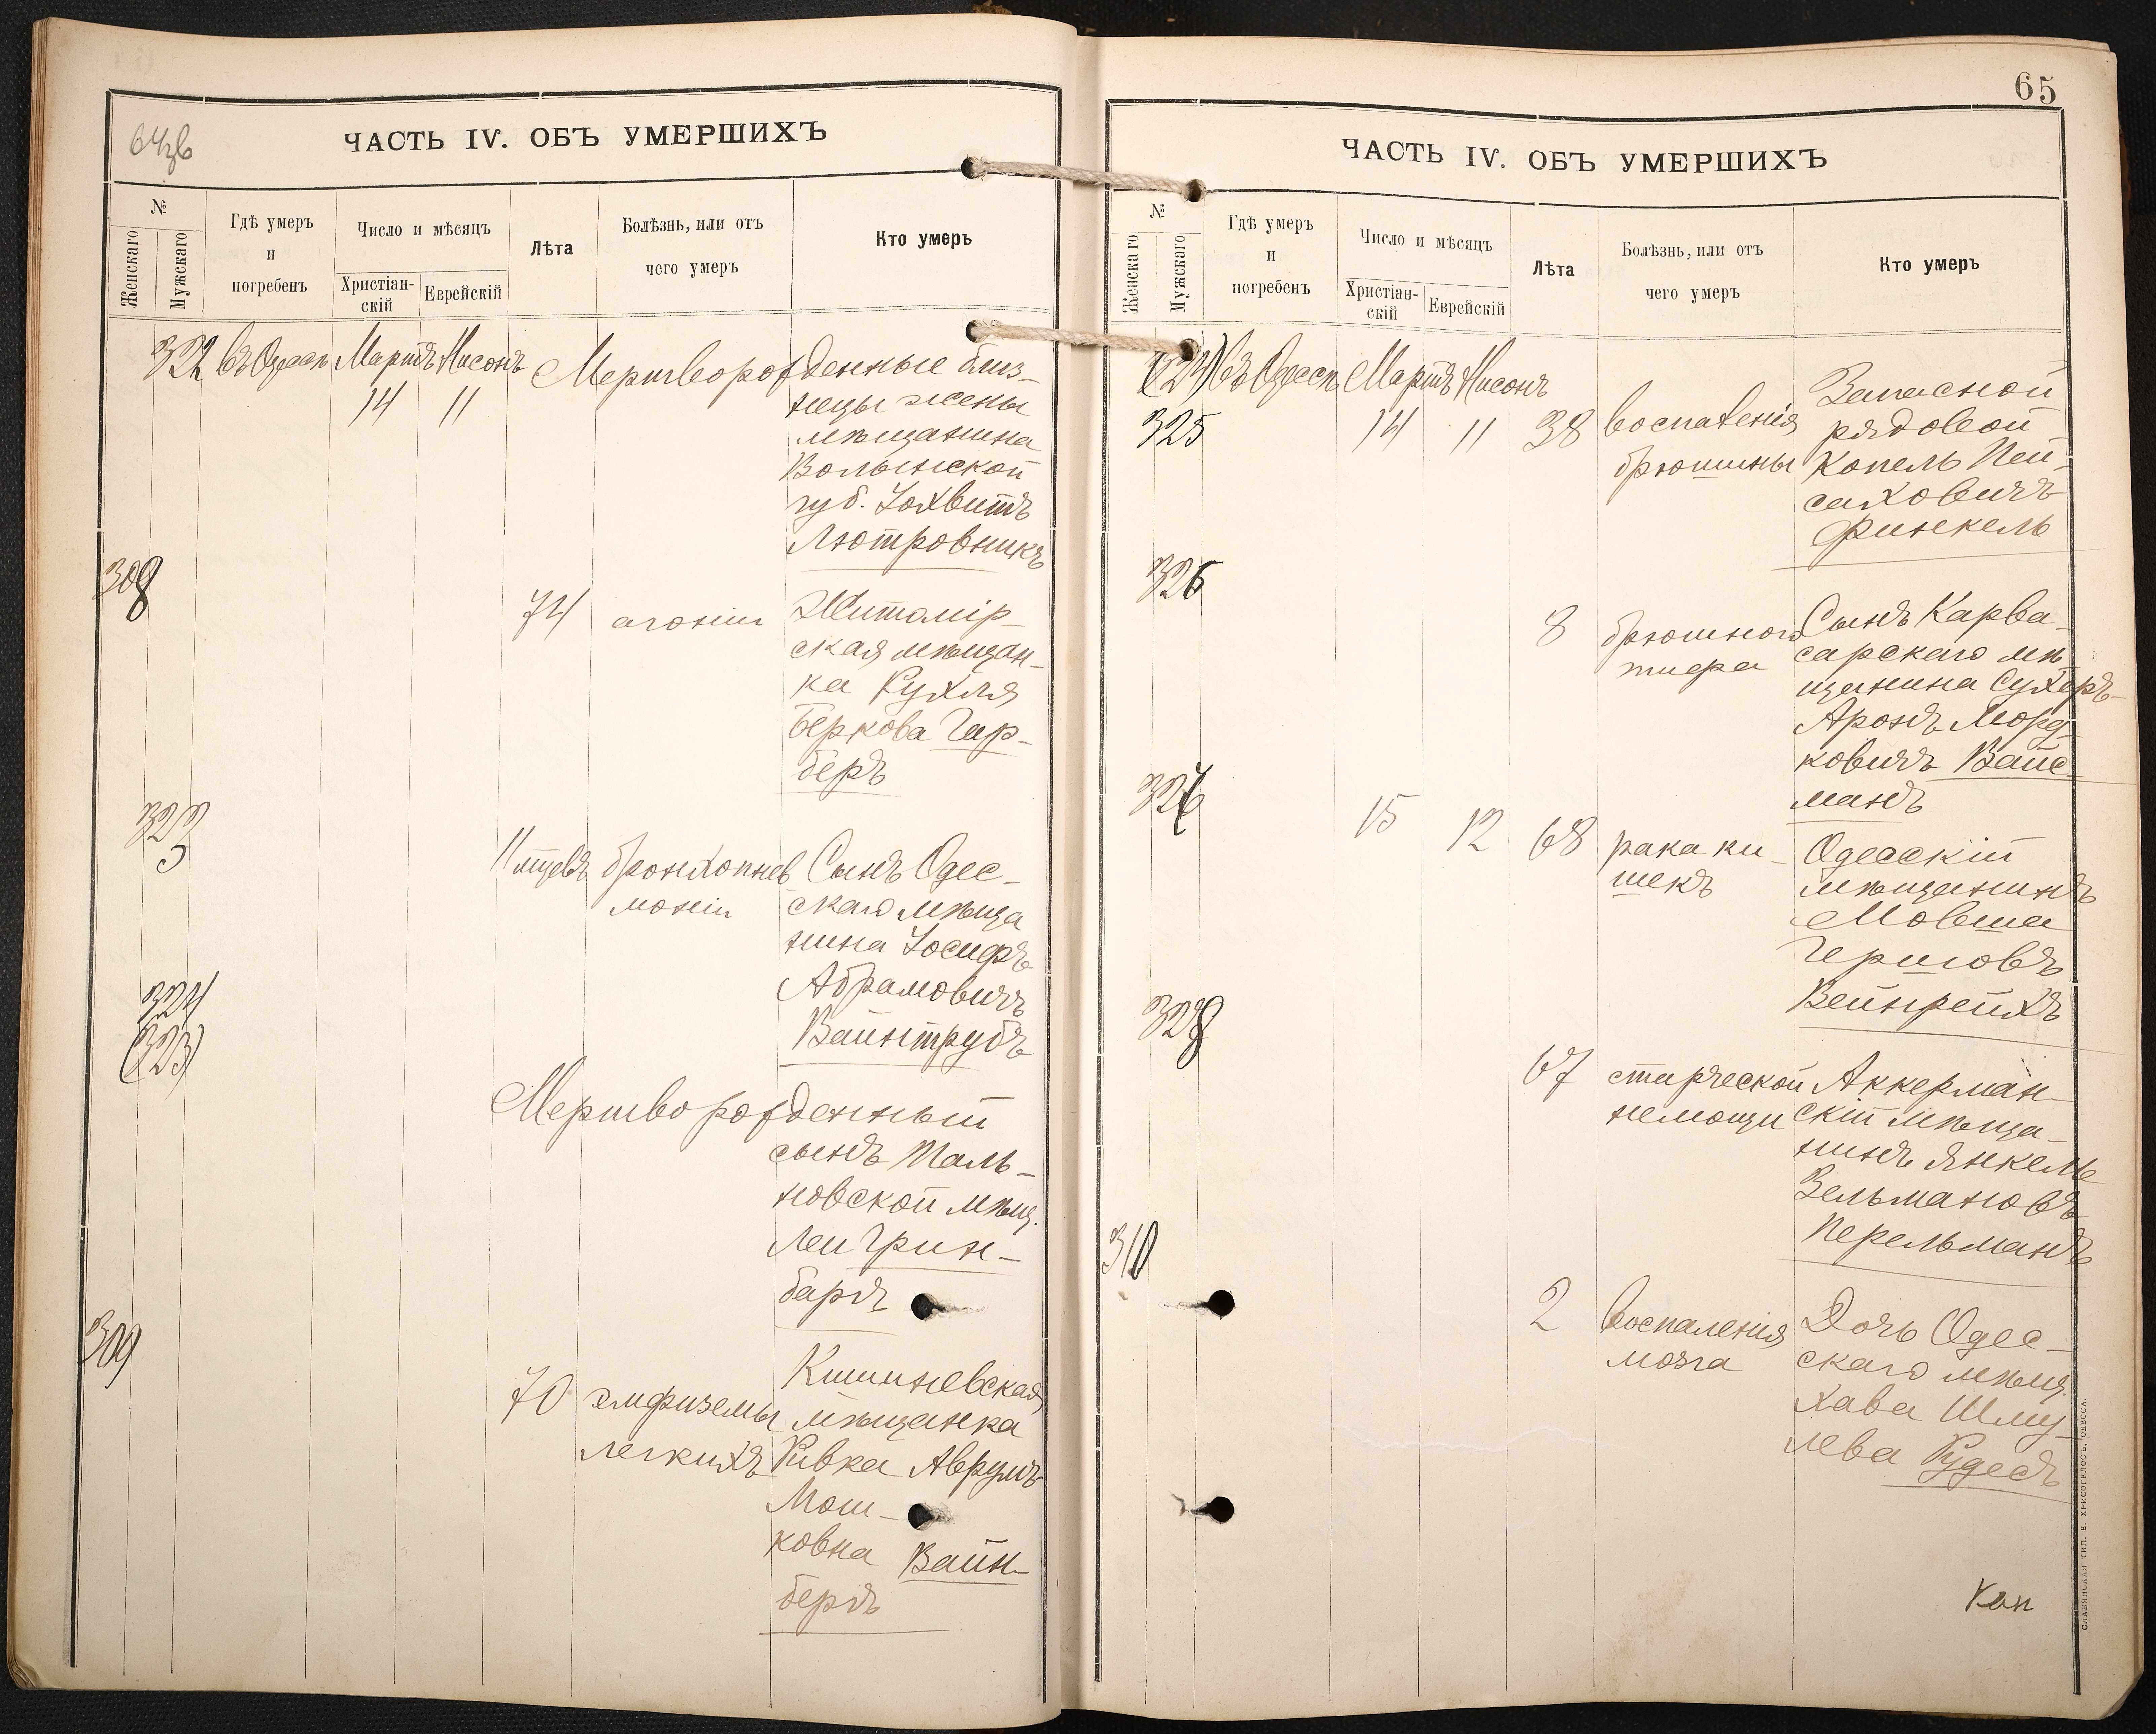 ЧАСТЬ IV. ОБЪ УМЕРШИХЪ
№
Женскаго
Мужскаго
Гдѣ умеръ
и
погребенъ
Число и мѣсяцъ
Христіан-
скій
Еврейскій
Лѣта
Болѣзнь, или отъ
чего умеръ
Кто умеръ
322 въ Одессѣ Мартъ Нисонъ Мертворожденные близ-
14 11 нецы жены
мѣщанина
Волынской
губ.
Лютровникъ
308
74 агоніи Житомір-
ская мѣщан-
ка Рухля
Беркова Гер-
беръ
323
11 мцевъ бронхопнев Сынъ Одес-
моніи скаго мѣща
нина Іосифъ
Абрамовичъ
Вайнтрубъ
324
(323)
Мертворожденный
сынъ Таль-
новской мѣщ.
Леи Грин-
бергъ
309
70 эмфиземы Кишиневская
легкихъ мѣщанка
Ривка Аврумъ
Мош-
ковна Вайн-
бергъ
65
ЧАСТЬ IV. ОБЪ УМЕРШИХЪ
№
Женскаго
Мужскаго
Гдѣ умеръ
и
погребенъ
Число и мѣсяцъ
Христіан-
скій
Еврейскій
Лѣта
Болѣзнь, или отъ
чего умеръ
Кто умеръ
(324) въ Одессѣ Мартъ Нисонъ
325 14 11 38 воспаленія Запасной
брюшины рядовой
Копель Пей-
саховичъ
Финкель
326
8 брюшного Сынъ Карва-
тифа сарскаго мѣ
щанина Сухеръ-
Аронъ Морд-
ковичъ Вайс-
манъ
327
15 12 68 рака ки- Одесскій
шекъ мѣщанинъ
Мовша
Гершовъ
Вейнрейхъ
328
67 старческой Аккерман-
немощи скій мѣща-
нинъ Янкель
Зельмановъ
Перельманъ
310
2 воспаленія Дочь Одес-
мозга скаго мѣщ.
Хава Шму-
лева Рудесъ
СЛАВЯНСКАЯ ТИП. Е. ХРИСОГЕЛОСЪ, ОДЕССА.